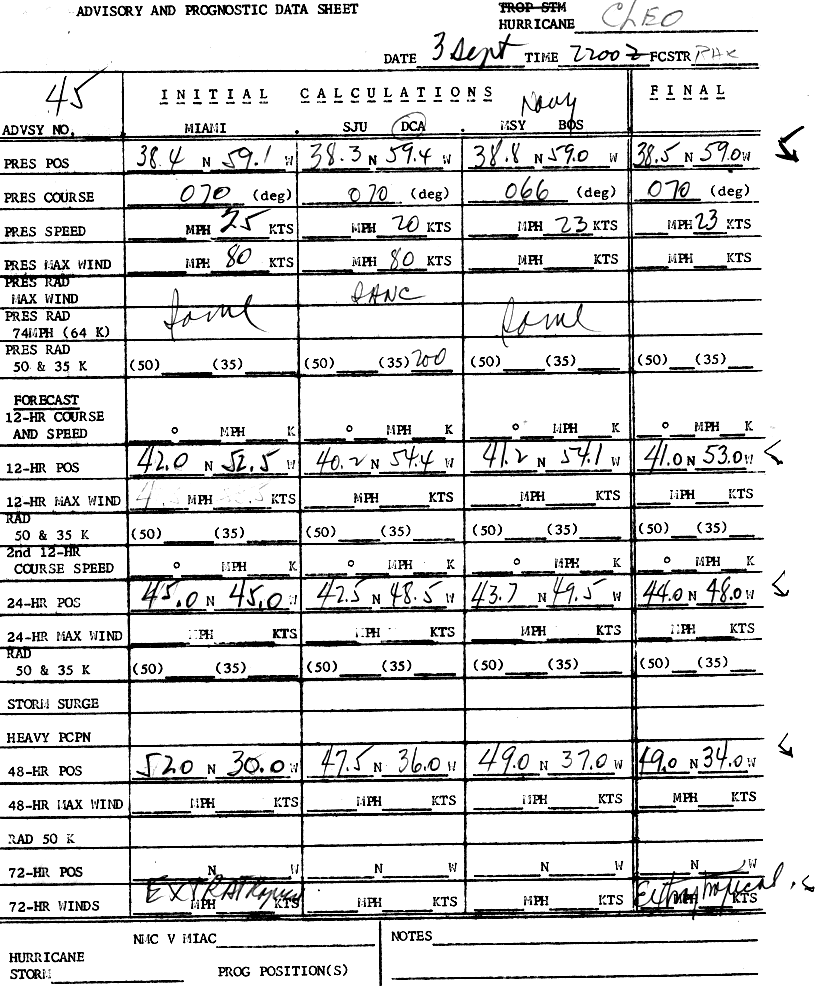 ADVISORY AND PROGNOSTIC DATA SHEET TROP STM
HURRICANE CLEO
DATE 3 Sept TIME 2200Z FCSTR
45 INITIAL CALCULATIONS Navy FINAL
ADVSY NO. MIAMI SJU DCA MSY BOS
PRES POS 38.4 N 59.1 W 38.3 N 59.4 W 38.8 N 59.0 W 38.5 N 59.0 W
PRES COURSE 070 (deg) 070 (deg) 066 (deg) 070 (deg)
PRES SPEED MPH 25 KTS MPH 20 KTS MPH 23 KTS MPH 23 KTS
PRES MAX WIND MPH 80 KTS MPH 80 KTS MPH KTS MPH KTS
PRES RAD
MAX WIND
PRES RAD Same Same
74MPH (64 K)
PRES RAD
50 & 35 K (50) (35) (50) (35) 200 (50) (35) (50) (35)
FORECAST
12-HR COURSE
AND SPEED ° MPH K ° MPH K ° MPH K ° MPH K
12-HR POS 42.0 N 52.5 W 40.2 N 54.4 W 41.2 N 54.1 W 41.0 N 53.0 W
12-HR MAX WIND MPH KTS MPH KTS MPH KTS MPH KTS
RAD
50 & 35 K (50) (35) (50) (35) (50) (35) (50) (35)
2nd 12-HR
COURSE SPEED ° MPH K ° MPH K ° MPH K ° MPH K
24-HR POS 45.0 N 45.0 W 42.5 N 48.5 W 43.7 N 49.5 W 44.0 N 48.0 W
24-HR MAX WIND MPH KTS MPH KTS MPH KTS MPH KTS
RAD
50 & 35 K (50) (35) (50) (35) (50) (35) (50) (35)
STORM SURGE
HEAVY PCPN
48-HR POS 52.0 N 30.0 W 47.5 N 36.0 W 49.0 N 37.0 W 49.0 N 34.0 W
48-HR MAX WIND MPH KTS MPH KTS MPH KTS MPH KTS
RAD 50 K
72-HR POS N W N W N W N W
EXTRATropical Extratropical
72-HR WINDS MPH KTS MPH KTS MPH KTS MPH KTS
NMC V MIAC NOTES
HURRICANE
STORM PROG POSITION(S)